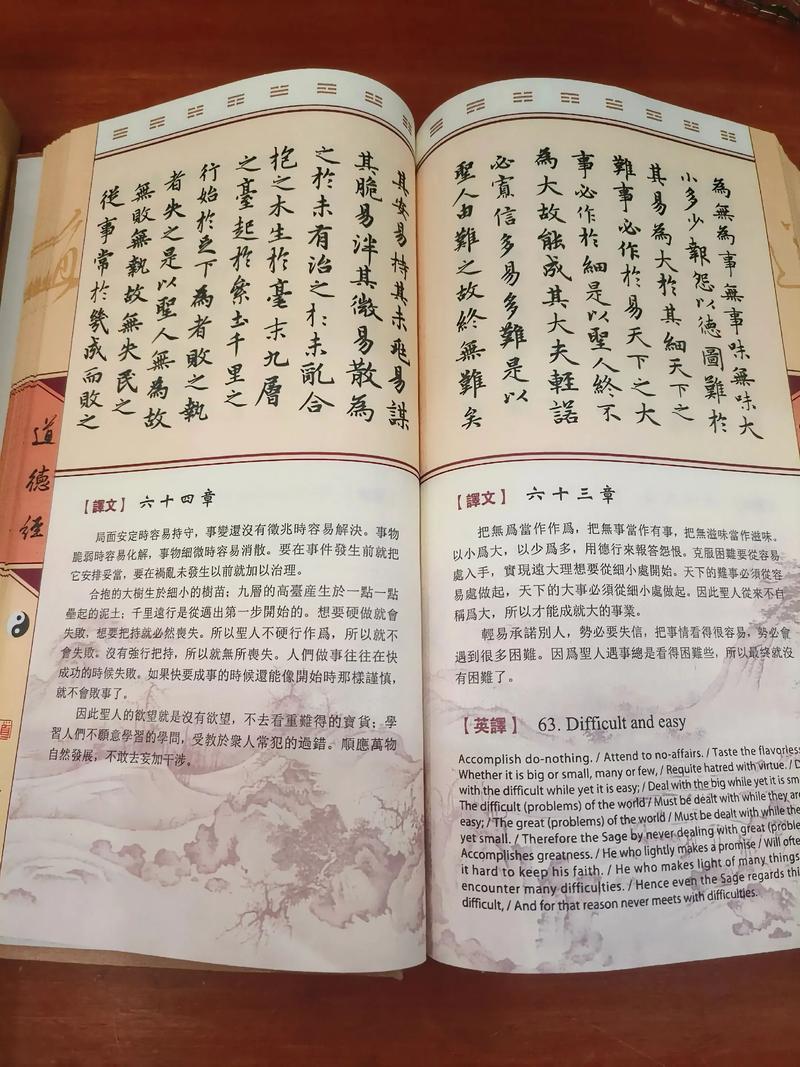 為無為事無事味無味大
小多少報怨以德圖難於
其易為大於其細天下之
難事必作於易天下之大
事必作於細是以聖人終不
為大故能成其大夫輕諾
必寡信多易多難是以
聖人由難之故終無難矣
【譯文】 六十三章
把無爲當作作爲，把無事當作有事，把無滋味當作滋味。
以小爲大，以少爲多，用德行來報答怨恨。克服困難要從容易
處入手，實現遠大理想要從細小處開始。天下的難事必須從容
易處做起，天下的大事必須從細小處做起。因此聖人從來不自
稱爲大，所以才能成就大的事業。
輕易承諾別人，勢必要失信，把事情看得很容易，勢必會
遇到很多困難。因爲聖人遇事總是看得困難些，所以最終就沒
有困難了。
【英譯】 63. Difficult and easy
Accomplish do-nothing. / Attend to no-affairs. / Taste the flavorless
Whether it is big or small, many or few, / Requite hatred with virtue. / D
with the difficult while yet it is easy; / Deal with the big while yet it is sm
The difficult (problems) of the world / Must be dealt with while they are
easy; / The great (problems) of the world / Must be dealt with while the
yet small. / Therefore the Sage by never dealing with great (proble
Accomplishes greatness. / He who lightly makes a promise / Will ofte
it hard to keep his faith. / He who makes light of many things
encounter many difficulties. / Hence even the Sage regards thi
difficult, / And for that reason never meets with difficulties.
其安易持其未兆易謀
其脆易泮其微易散為
之於未有治之於未亂合
抱之木生於毫末九層
之臺起於累土千里之
行始於足下為者敗之執
者失之是以聖人無為故
無敗無執故無失民之
從事常於幾成而敗之
道德經
【譯文】 六十四章
局面安定時容易持守，事變還沒有徵兆時容易解決。事物
脆弱時容易化解，事物細微時容易消散。要在事件發生前就把
它安排妥當，要在禍亂未發生以前就加以治理。
合抱的大樹生於細小的樹苗；九層的高臺産生於一點一點
壘起的泥土；千里遠行是從邁出第一步開始的。想要硬做就會
失敗，想要把持就必然喪失。所以聖人不硬行作爲，所以就不
會失敗。沒有強行把持，所以就無所喪失。人們做事往往在快
成功的時候失敗。如果快要成事的時候還能像開始時那樣謹慎，
就不會敗事了。
因此聖人的欲望就是沒有欲望，不去看重難得的寶貨；學
習人們不願意學習的學問，受教於衆人常犯的過錯。順應萬物
自然發展，不敢去妄加干涉。